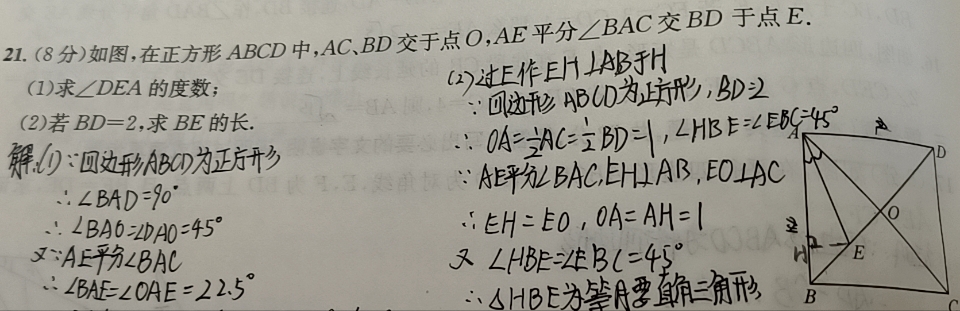 21. (8分)如图,在正方形ABCD中,AC、BD交于点O,AE平分∠BAC交BD于点E.
(1)求∠DEA的度数;
(2)若BD=2,求BE的长.
解:(1)∵四边形ABCD为正方形
∴∠BAD=90°
∴∠BAO=∠DAO=45°
又∵AE平分∠BAC
∴∠BAE=∠OAE=22.5°
(2)过E作EH⊥AB于H
∵四边形ABCD为正方形,BD=2
∴OA=1/2AC=1/2BD=1,∠HBE=∠EBC=45°
∵AE平分∠BAC,EH⊥AB,EO⊥AC
∴EH=EO,OA=AH=1
又∠HBE=∠EBC=45°
∴△HBE为等腰直角三角形
A
D
O
H
E
B
C